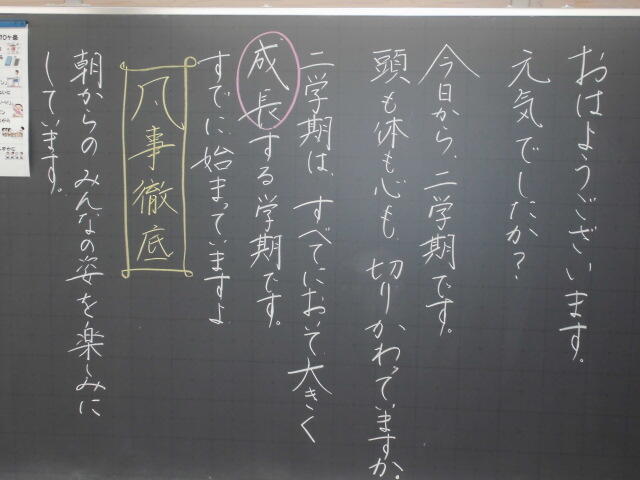 おはようございます。
元気でしたか?
今日から、二学期です。
頭も体も心も、切りかわっていますか。
二学期は、すべてにおいて大きく
成長する学期です。
すでに始まっていますよ
凡事徹底
朝からのみんなの姿を楽しみに
しています。